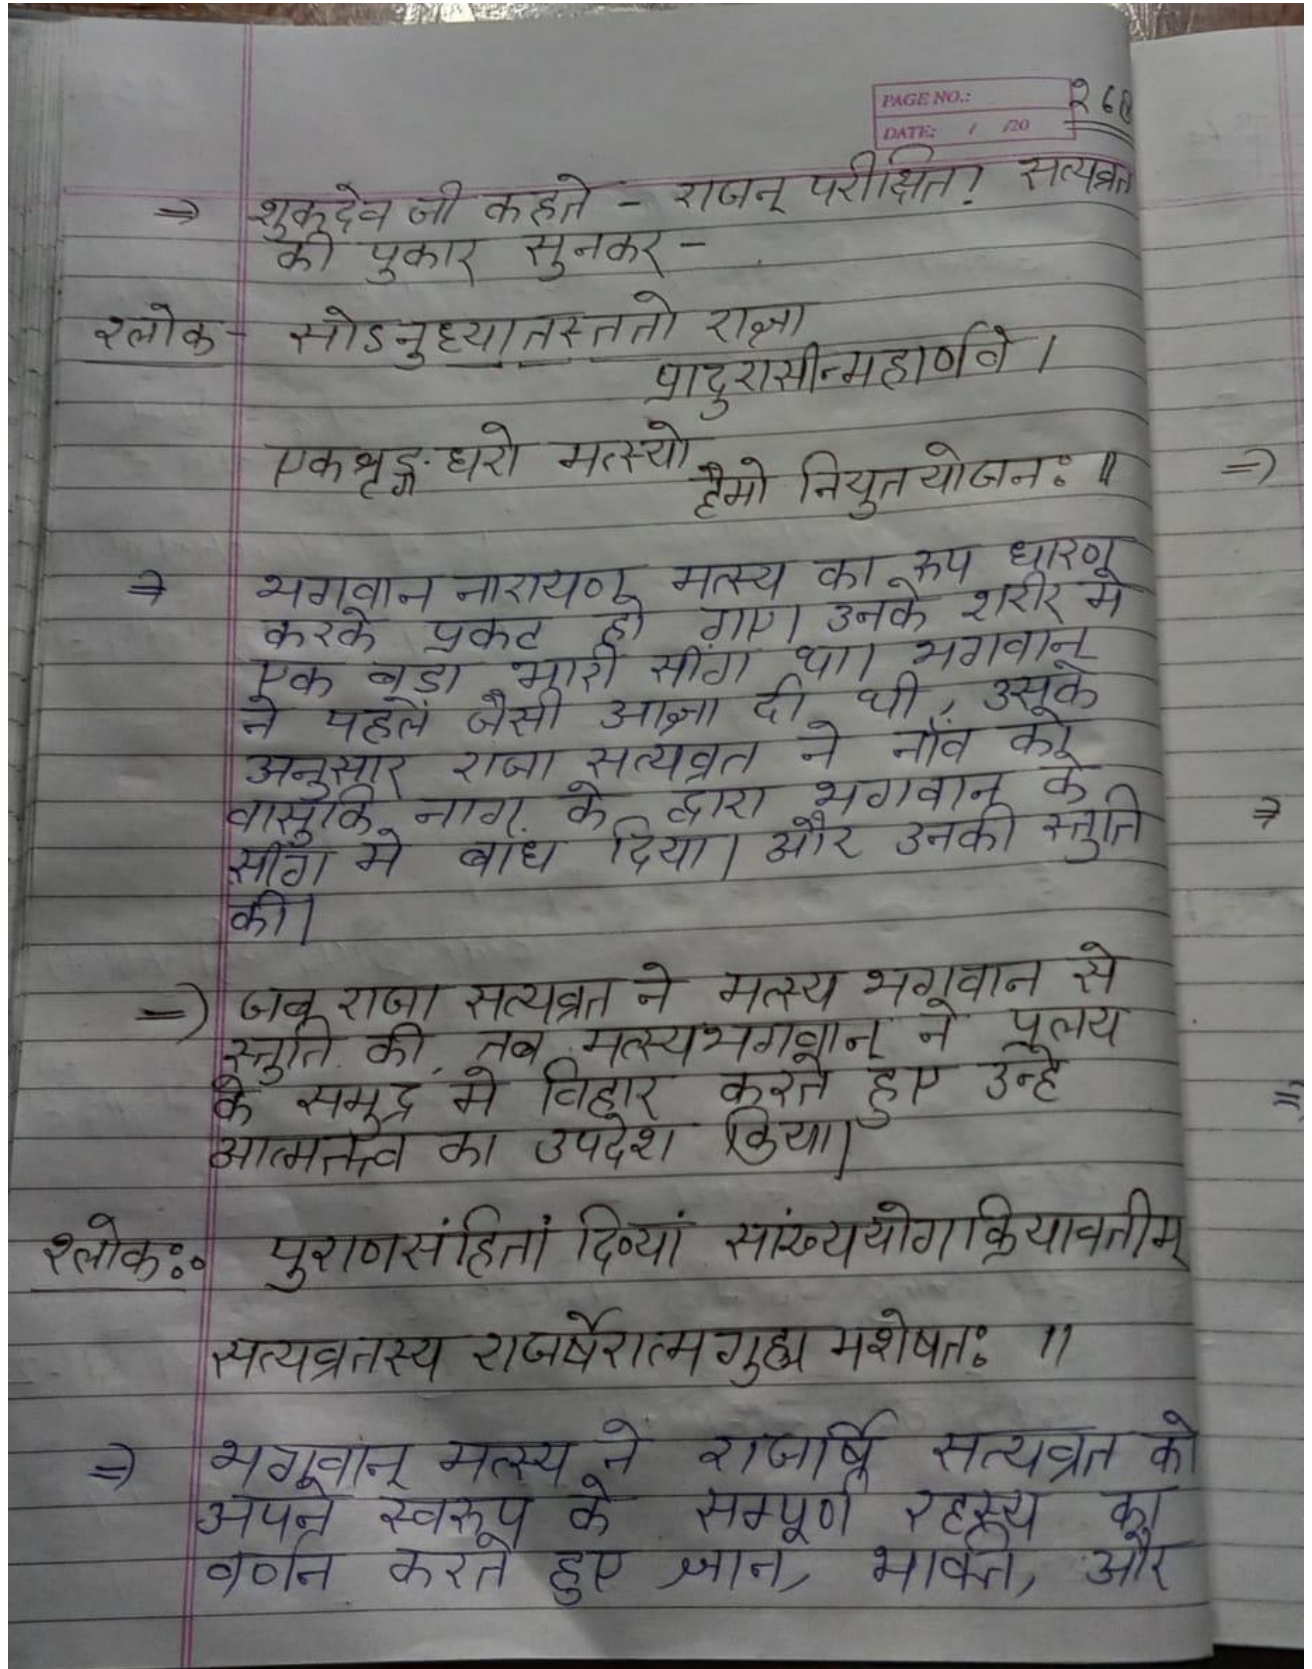 PAGE NO.:
DATE: / /20
⇒ शुकदेव जी कहते - राजन् परीक्षित! सत्यव्रत
की पुकार सुनकर -
श्लोक - सोऽनुध्यातस्ततो राज्ञा
प्रादुरासीन्महार्णवे।
एकश्रृङ्गधरो मत्स्यो
हैमो नियुतयोजनः॥
⇒ भगवान नारायण मत्स्य का रुप धारण
करके प्रकट हो गए। उनके शरीर मे
एक बडा भारी सींग था। भगवान्
ने पहले जैसी आज्ञा दी थी, उसके
अनुसार राजा सत्यव्रत ने नौंव को
वासुकि नाग के द्वारा भगवान् के
सींग मे बांध दिया। और उनकी स्तुति
की।
⇒ जब राजा सत्यव्रत ने मत्स्य भगवान से
स्तुति की, तब मत्स्यभगवान् ने प्रलय
के समुद्र मे विहार करते हुए उन्हे
आत्मतत्त्व का उपदेश किया।
श्लोकः॰ पुराणसंहितां दिव्यां सांख्ययोगक्रियावतीम्
सत्यव्रतस्य राजर्षेरात्मगुह्य मशेषतः ॥
⇒ भगवान् मत्स्य ने राजर्षि सत्यव्रत को
अपने स्वरूप के सम्पूर्ण रहस्य का
वर्णन करते हुए ज्ञान, भक्ति, और